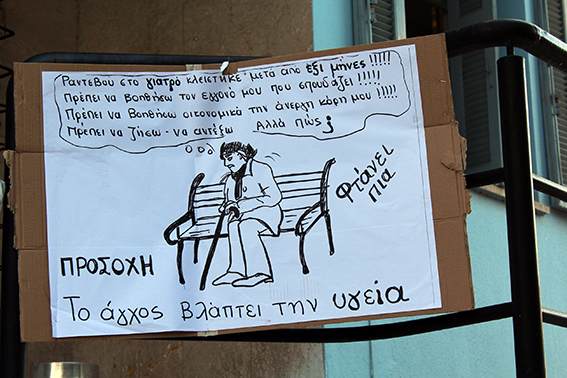 Ραντεβού στο γιατρό κλείστηκε μετά από έξι μήνες!!!!!
Πρέπει να βοηθήσω τον εγγονό μου που σπουδάζει!!!!!
Πρέπει να βοηθήσω οικονομικά την άνεργη κόρη μου!!!!!
Πρέπει να ζήσω - να αντέξω Αλλά πώς;
Φτάνει
πια
ΠΡΟΣΟΧΗ
Το άγχος βλάπτει την υγεία